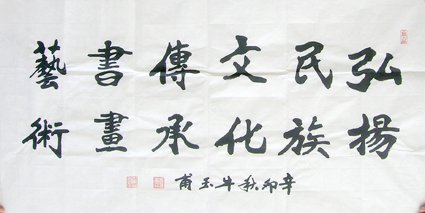 弘揚
民族
文化
傳承
書畫
藝術
辛卯秋牛玉甫